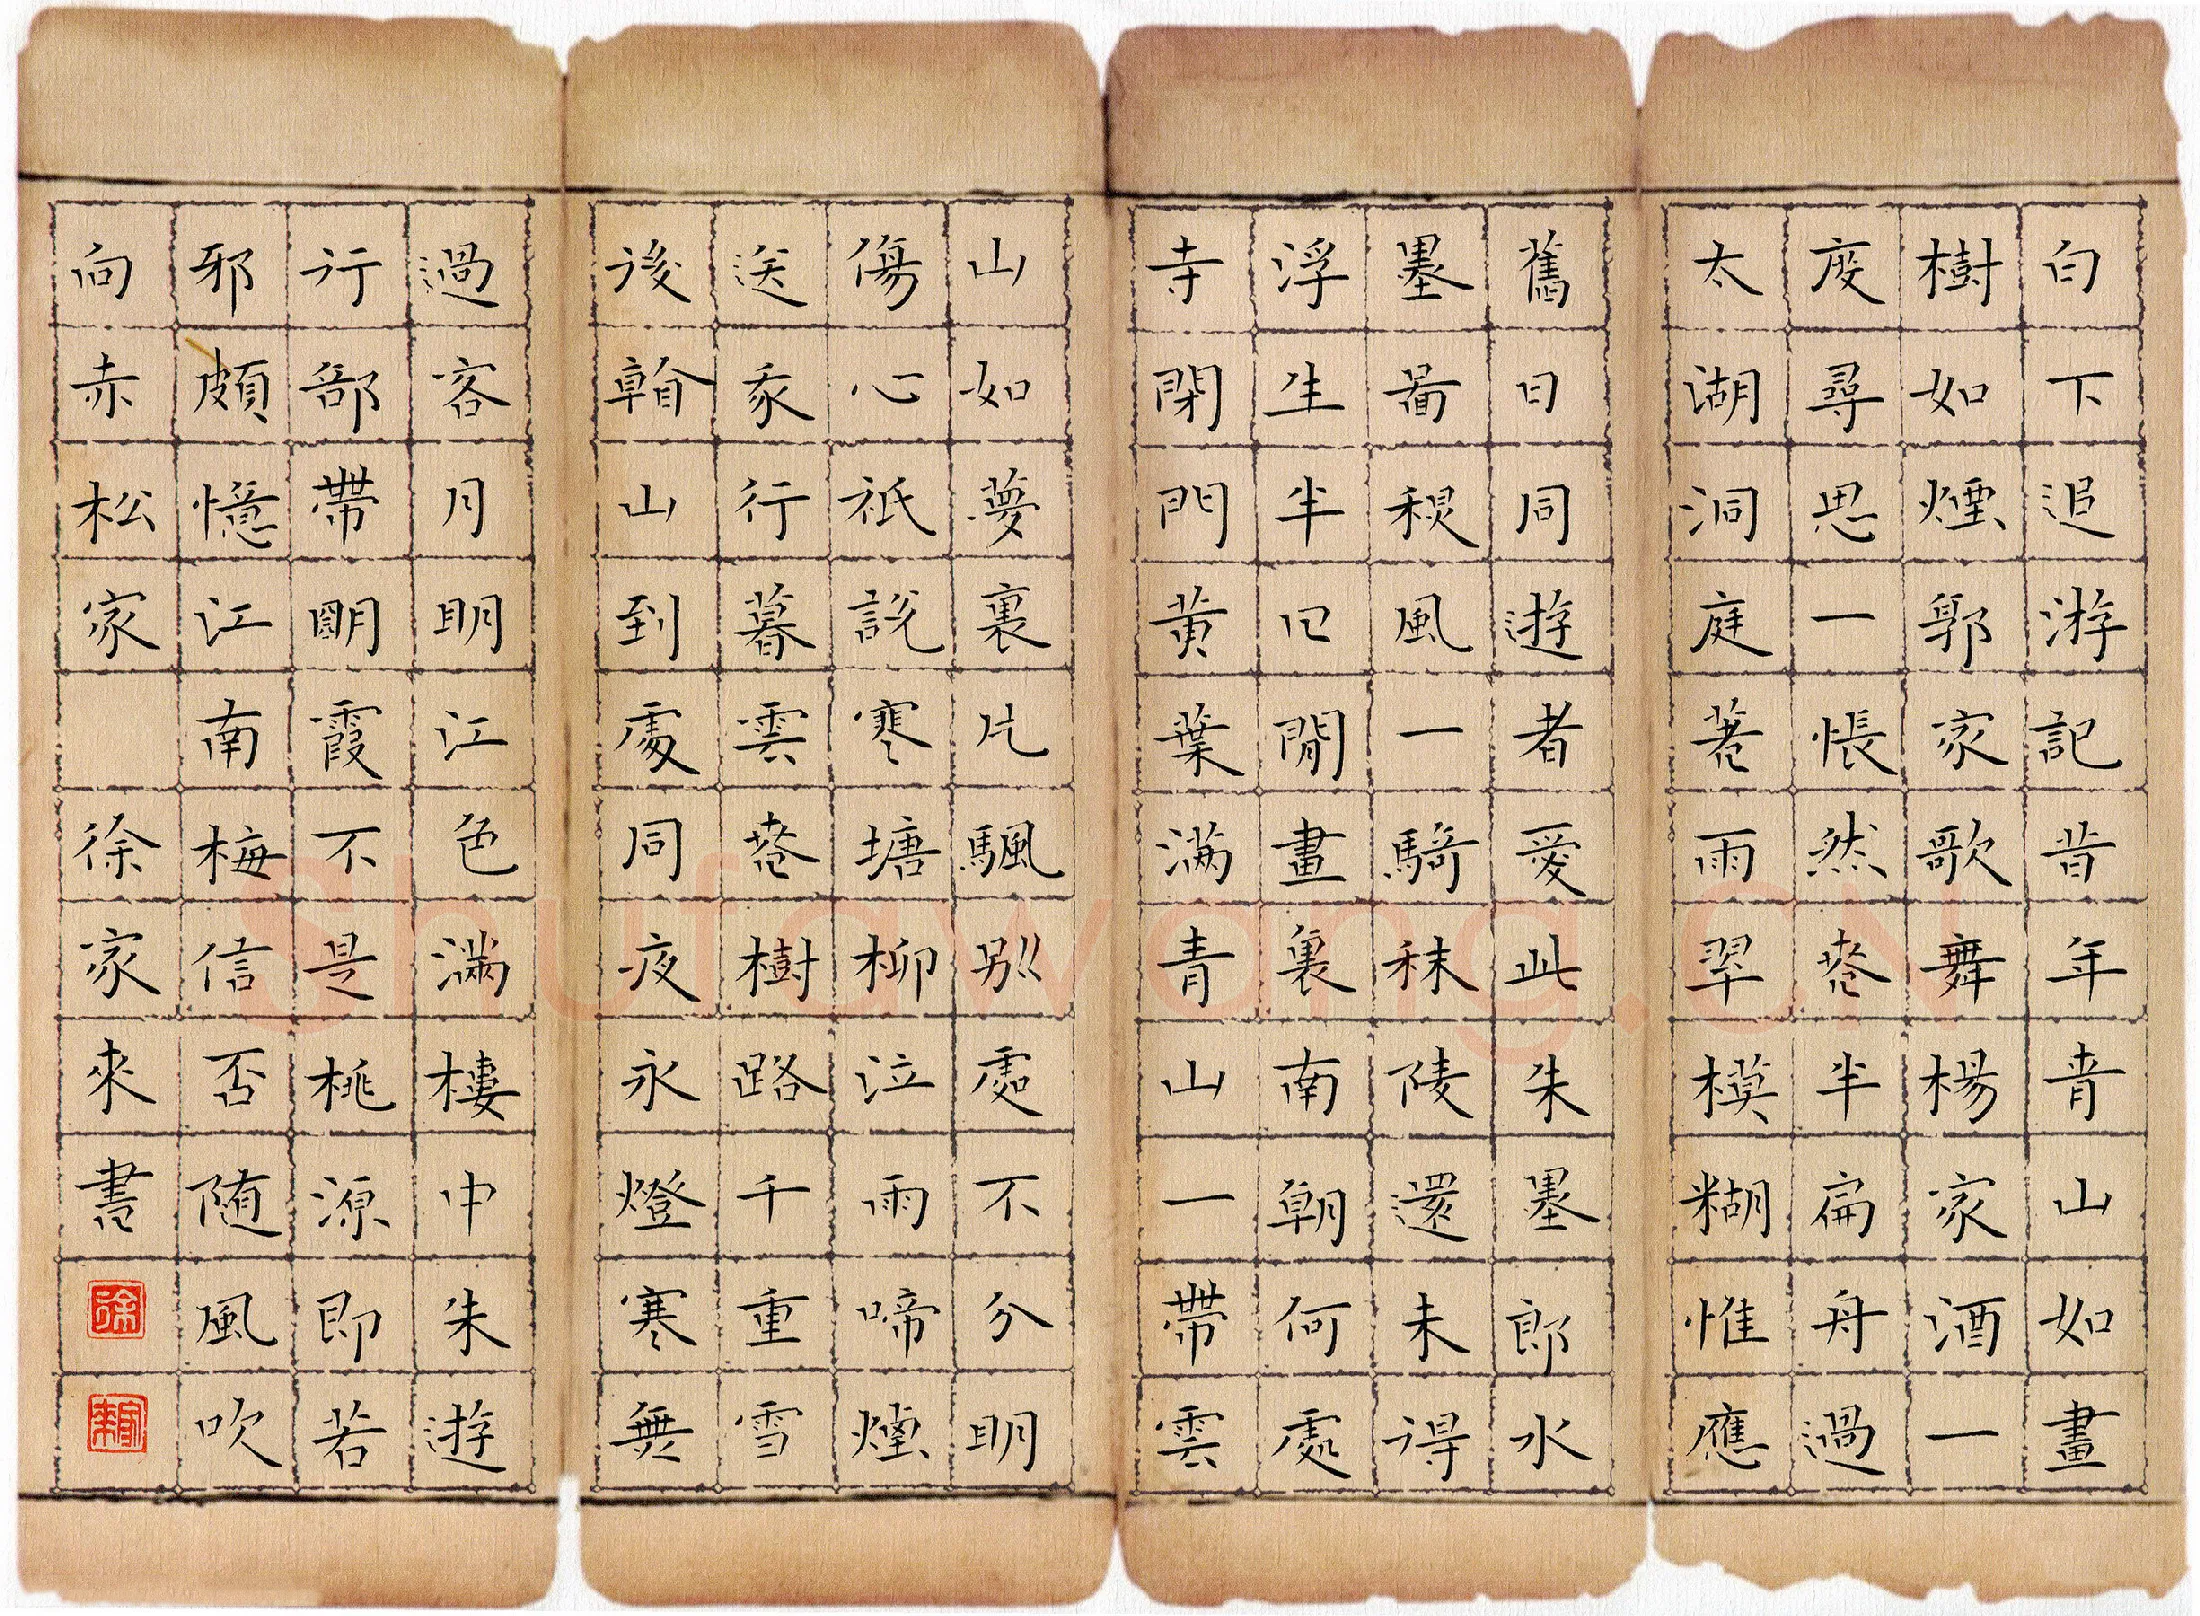 白下追游記昔年青山如畫
樹如煙郭家歌舞楊家酒一
度尋思一悵然春半扁舟過
太湖洞庭春雨翠模糊惟應
舊日同遊者愛此朱墨郎水
墨啚秋風一騎秣陵還未得
浮生半日閒畫裏南朝何處
寺閉門黃葉滿青山一帶雲
山如夢裏片颿別處不分明
傷心祇說寒塘柳泣雨啼煙
送我行暮雲春樹路千重雪
後看山到處同夜永燈寒無
過客月明江色滿樓中朱遊
行郤帶朙霞不是桃源即若
邪頗憶江南梅信否随風吹
向赤松家 徐家來書